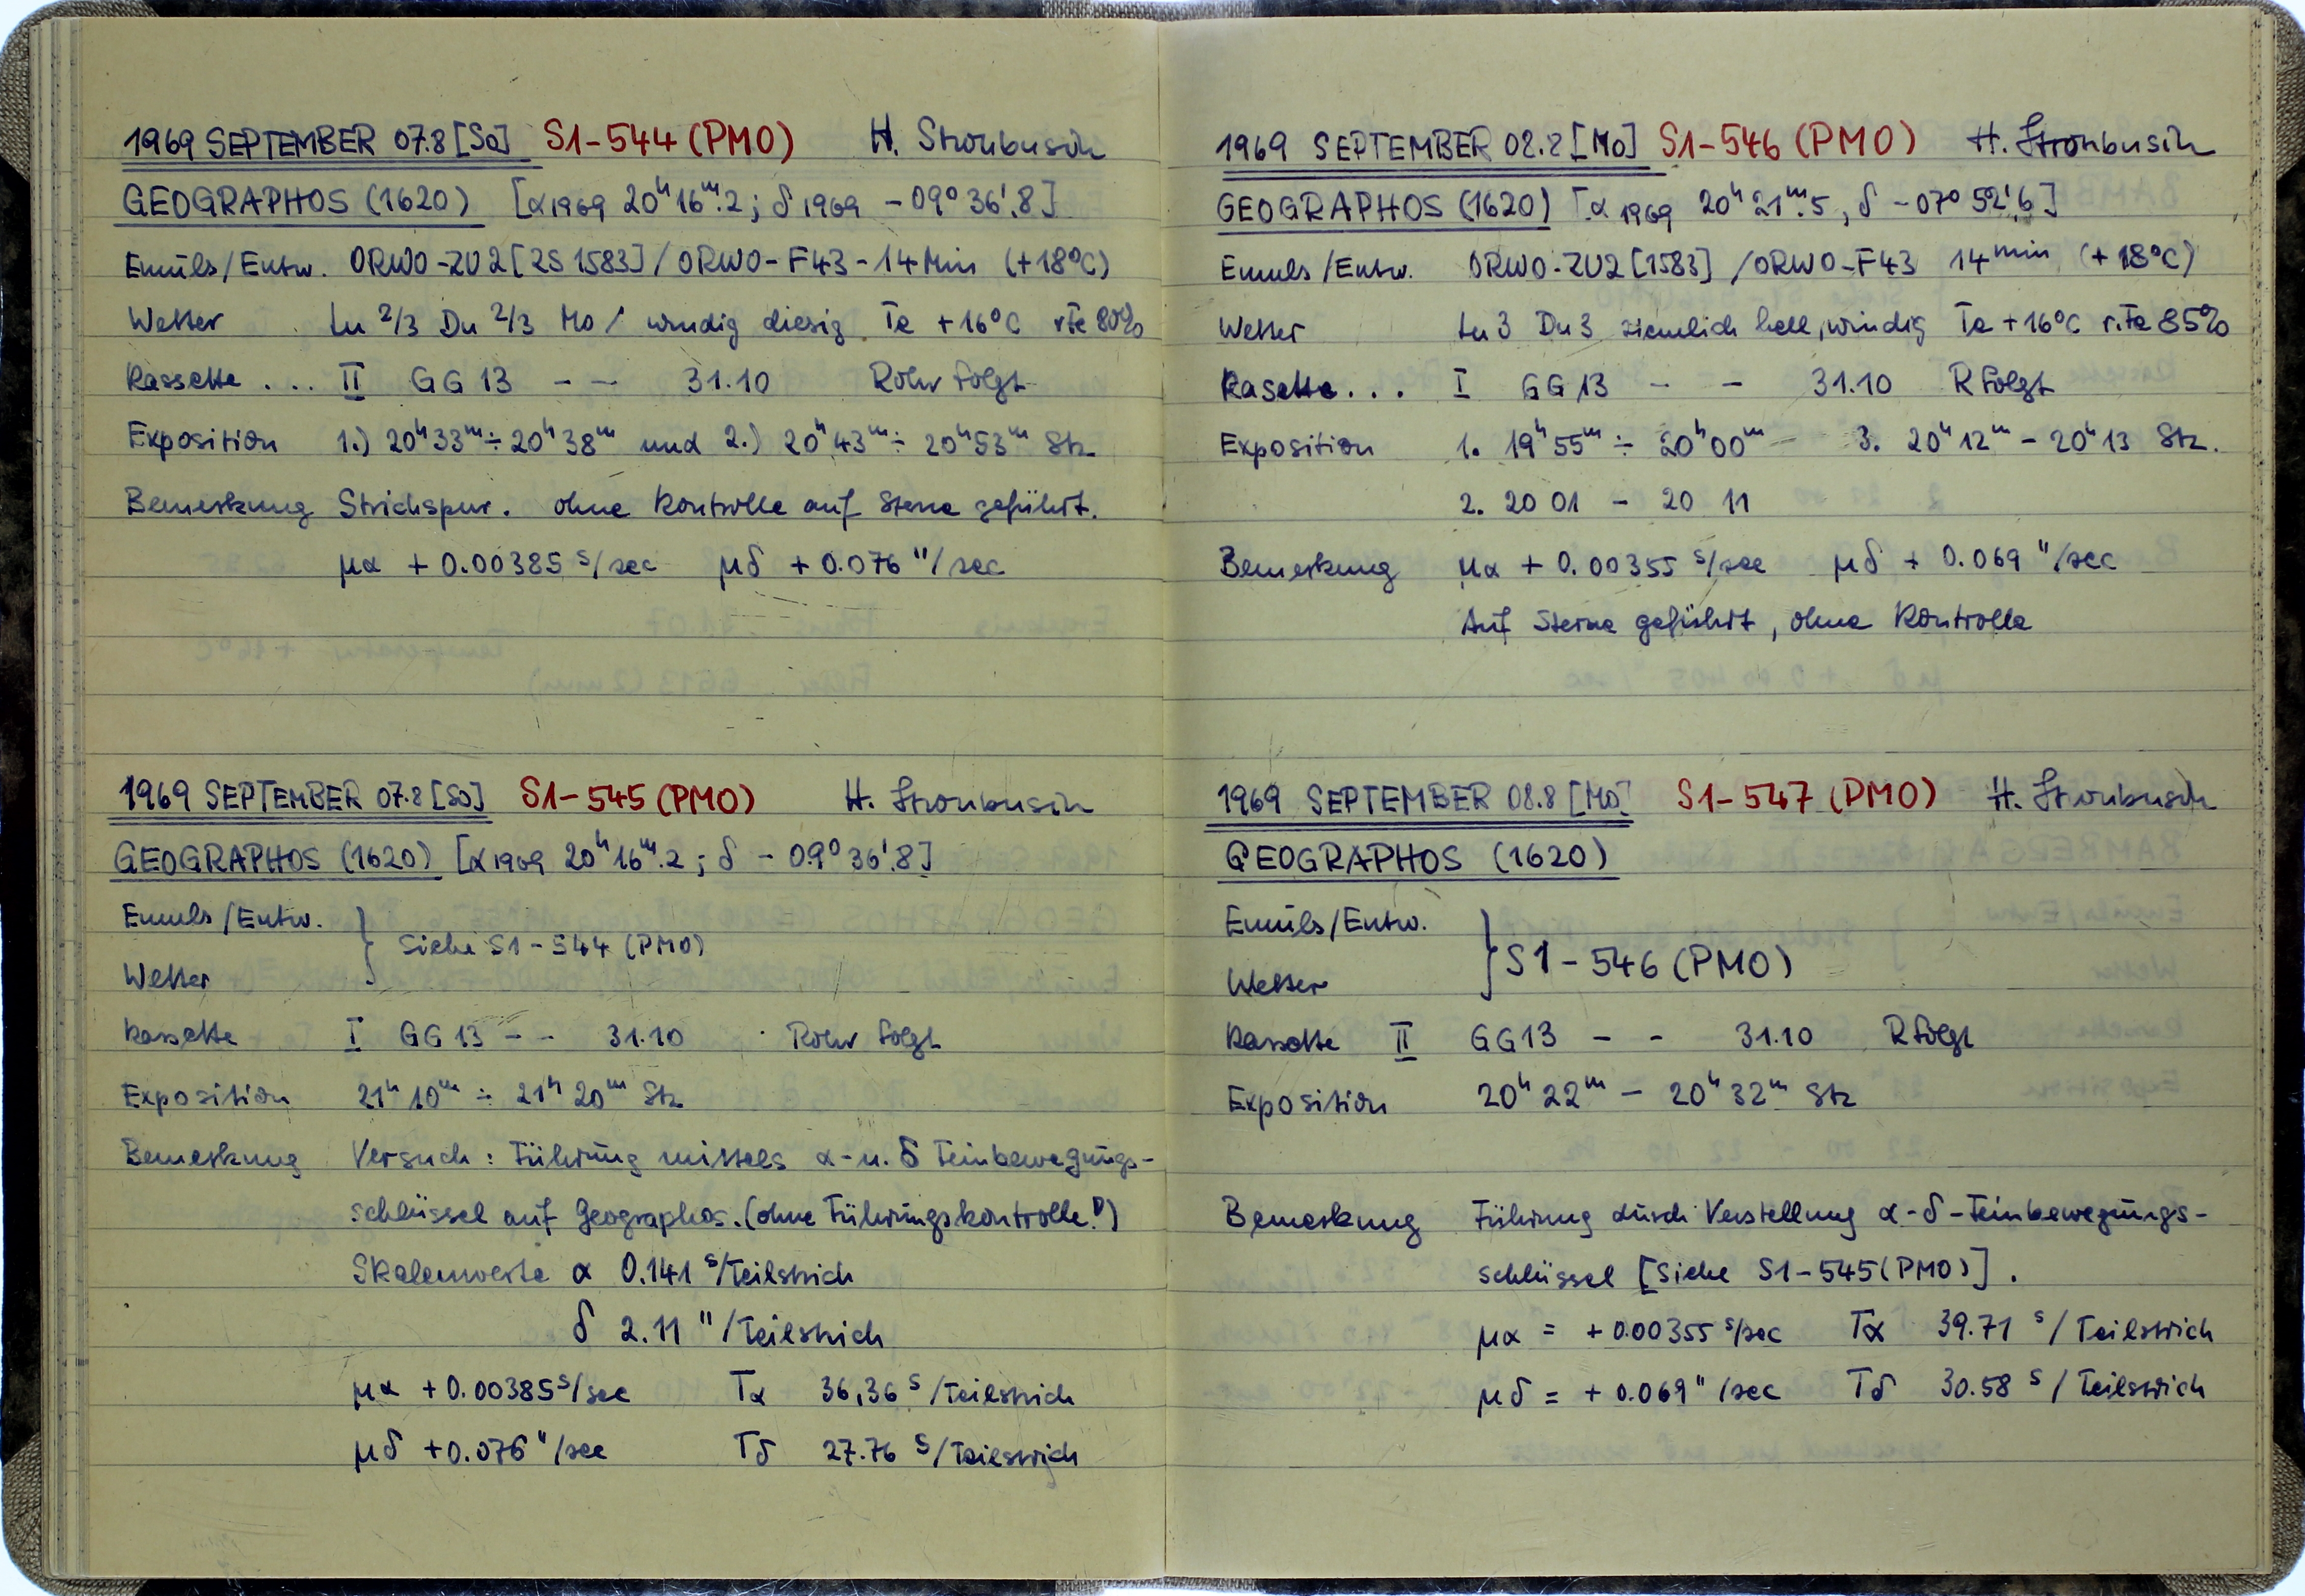 1969 SEPTEMBER 07.8 [So] S1-544 (PMO) H. Stronbusch
GEOGRAPHOS (1620) [α1969 20h16m.2; δ1969 -09° 36'.8]
Emuls/Entw. ORWO-ZU2 [ZS 1583] / ORWO-F43-14Min (+18°C)
Wetter Lu 2/3 Du 2/3 Mo / windig diesig Te +16°C rFe 80%
Kassette ... II GG 13 - - 31.10 Rohr folgt
Exposition 1.) 20h33m ÷ 20h38m und 2.) 20h43m ÷ 20h53m Stz
Bemerkung Strichspur. ohne Kontrolle auf Sterne geführt.
μα +0.00385 s/sec μδ +0.076 "/sec
1969 SEPTEMBER 07.8 [So] S1-545 (PMO) H. Stronbusch
GEOGRAPHOS (1620) [α1969 20h16m.2; δ -09° 36'.8]
Emuls/Entw.
Wetter } Siehe S1-544 (PMO)
Kassette I GG 13 - - 31.10 Rohr folgt
Exposition 21h10m ÷ 21h20m Stz
Bemerkung Versuch: Führung mittels α- u. δ Feinbewegungs-
schlüssel auf Geographos. (ohne Führungskontrolle!)
Skalenwerte α 0.141 s/Teilstrich
δ 2.11 "/Teilstrich
μα +0.00385 s/sec Tα 36,36 s/Teilstrich
μδ +0.076 "/sec Tδ 27.76 s/Teilstrich
1969 SEPTEMBER 08.8 [Mo] S1-546 (PMO) H. Stronbusch
GEOGRAPHOS (1620) [α1969 20h21m.5, δ -07° 52'.6]
Emuls/Entw. ORWO-ZU2 [1583] / ORWO-F43 14min (+18°C)
Wetter Lu 3 Du 3 ziemlich hell, windig Te +16°C r.Fe 85%
Kasette... I GG 13 - - 31.10 R folgt
Exposition 1. 19h55m ÷ 20h00m 3. 20h12m - 20h13 Stz.
2. 20 01 - 20 11
Bemerkung μα +0.00355 s/sec μδ +0.069 "/sec
Auf Sterne geführt, ohne Kontrolle
1969 SEPTEMBER 08.8 [Mo] S1-547 (PMO) H. Stronbusch
GEOGRAPHOS (1620)
Emuls/Entw.
Wetter } S1-546 (PMO)
Kassette II GG13 - - 31.10 R folgt
Exposition 20h22m - 20h32m Stz
Bemerkung Führung durch Verstellung α-δ-Feinbewegungs-
schlüssel [Siehe S1-545 (PMO)].
μα = +0.00355 s/sec Tα 39.71 s/Teilstrich
μδ = +0.069 "/sec Tδ 30.58 s/Teilstrich